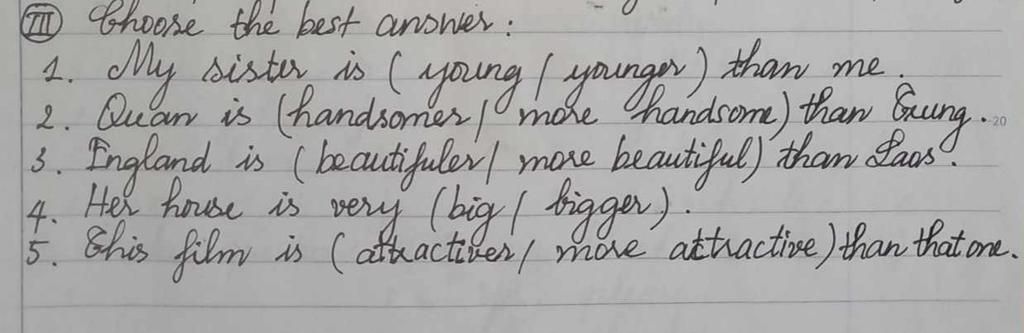 III Choose the best answer:
1. My sister is (young / younger) than me.
2. Quan is (handsomer / more handsome) than Trung.
3. England is (beautifuler / more beautiful) than Laos.
4. Her house is very (big / bigger).
5. This film is (attractiver / more attractive) than that one.
20